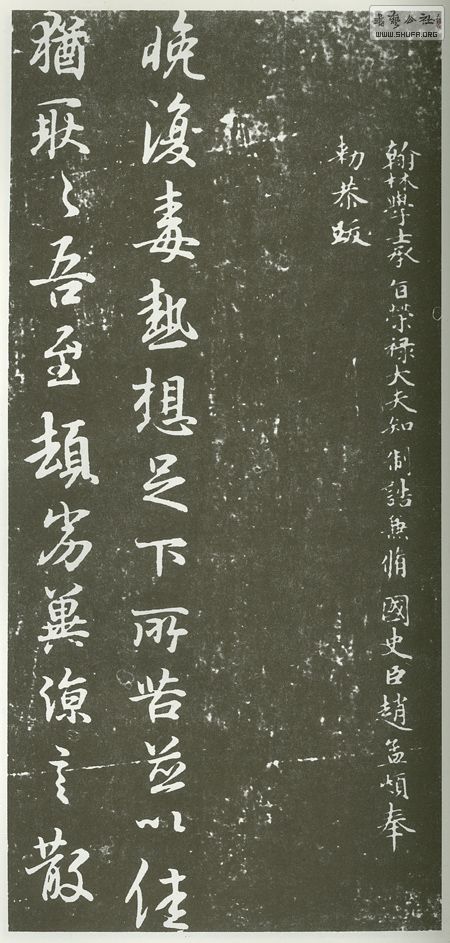 翰林學士承旨榮祿大夫知制誥兼脩國史臣趙孟頫奉
勑恭跋
晚復毒熱想足下所苦並以佳
猶耿々吾至頓劣冀涼言散
書藝公社
WWW.SHUFA.ORG